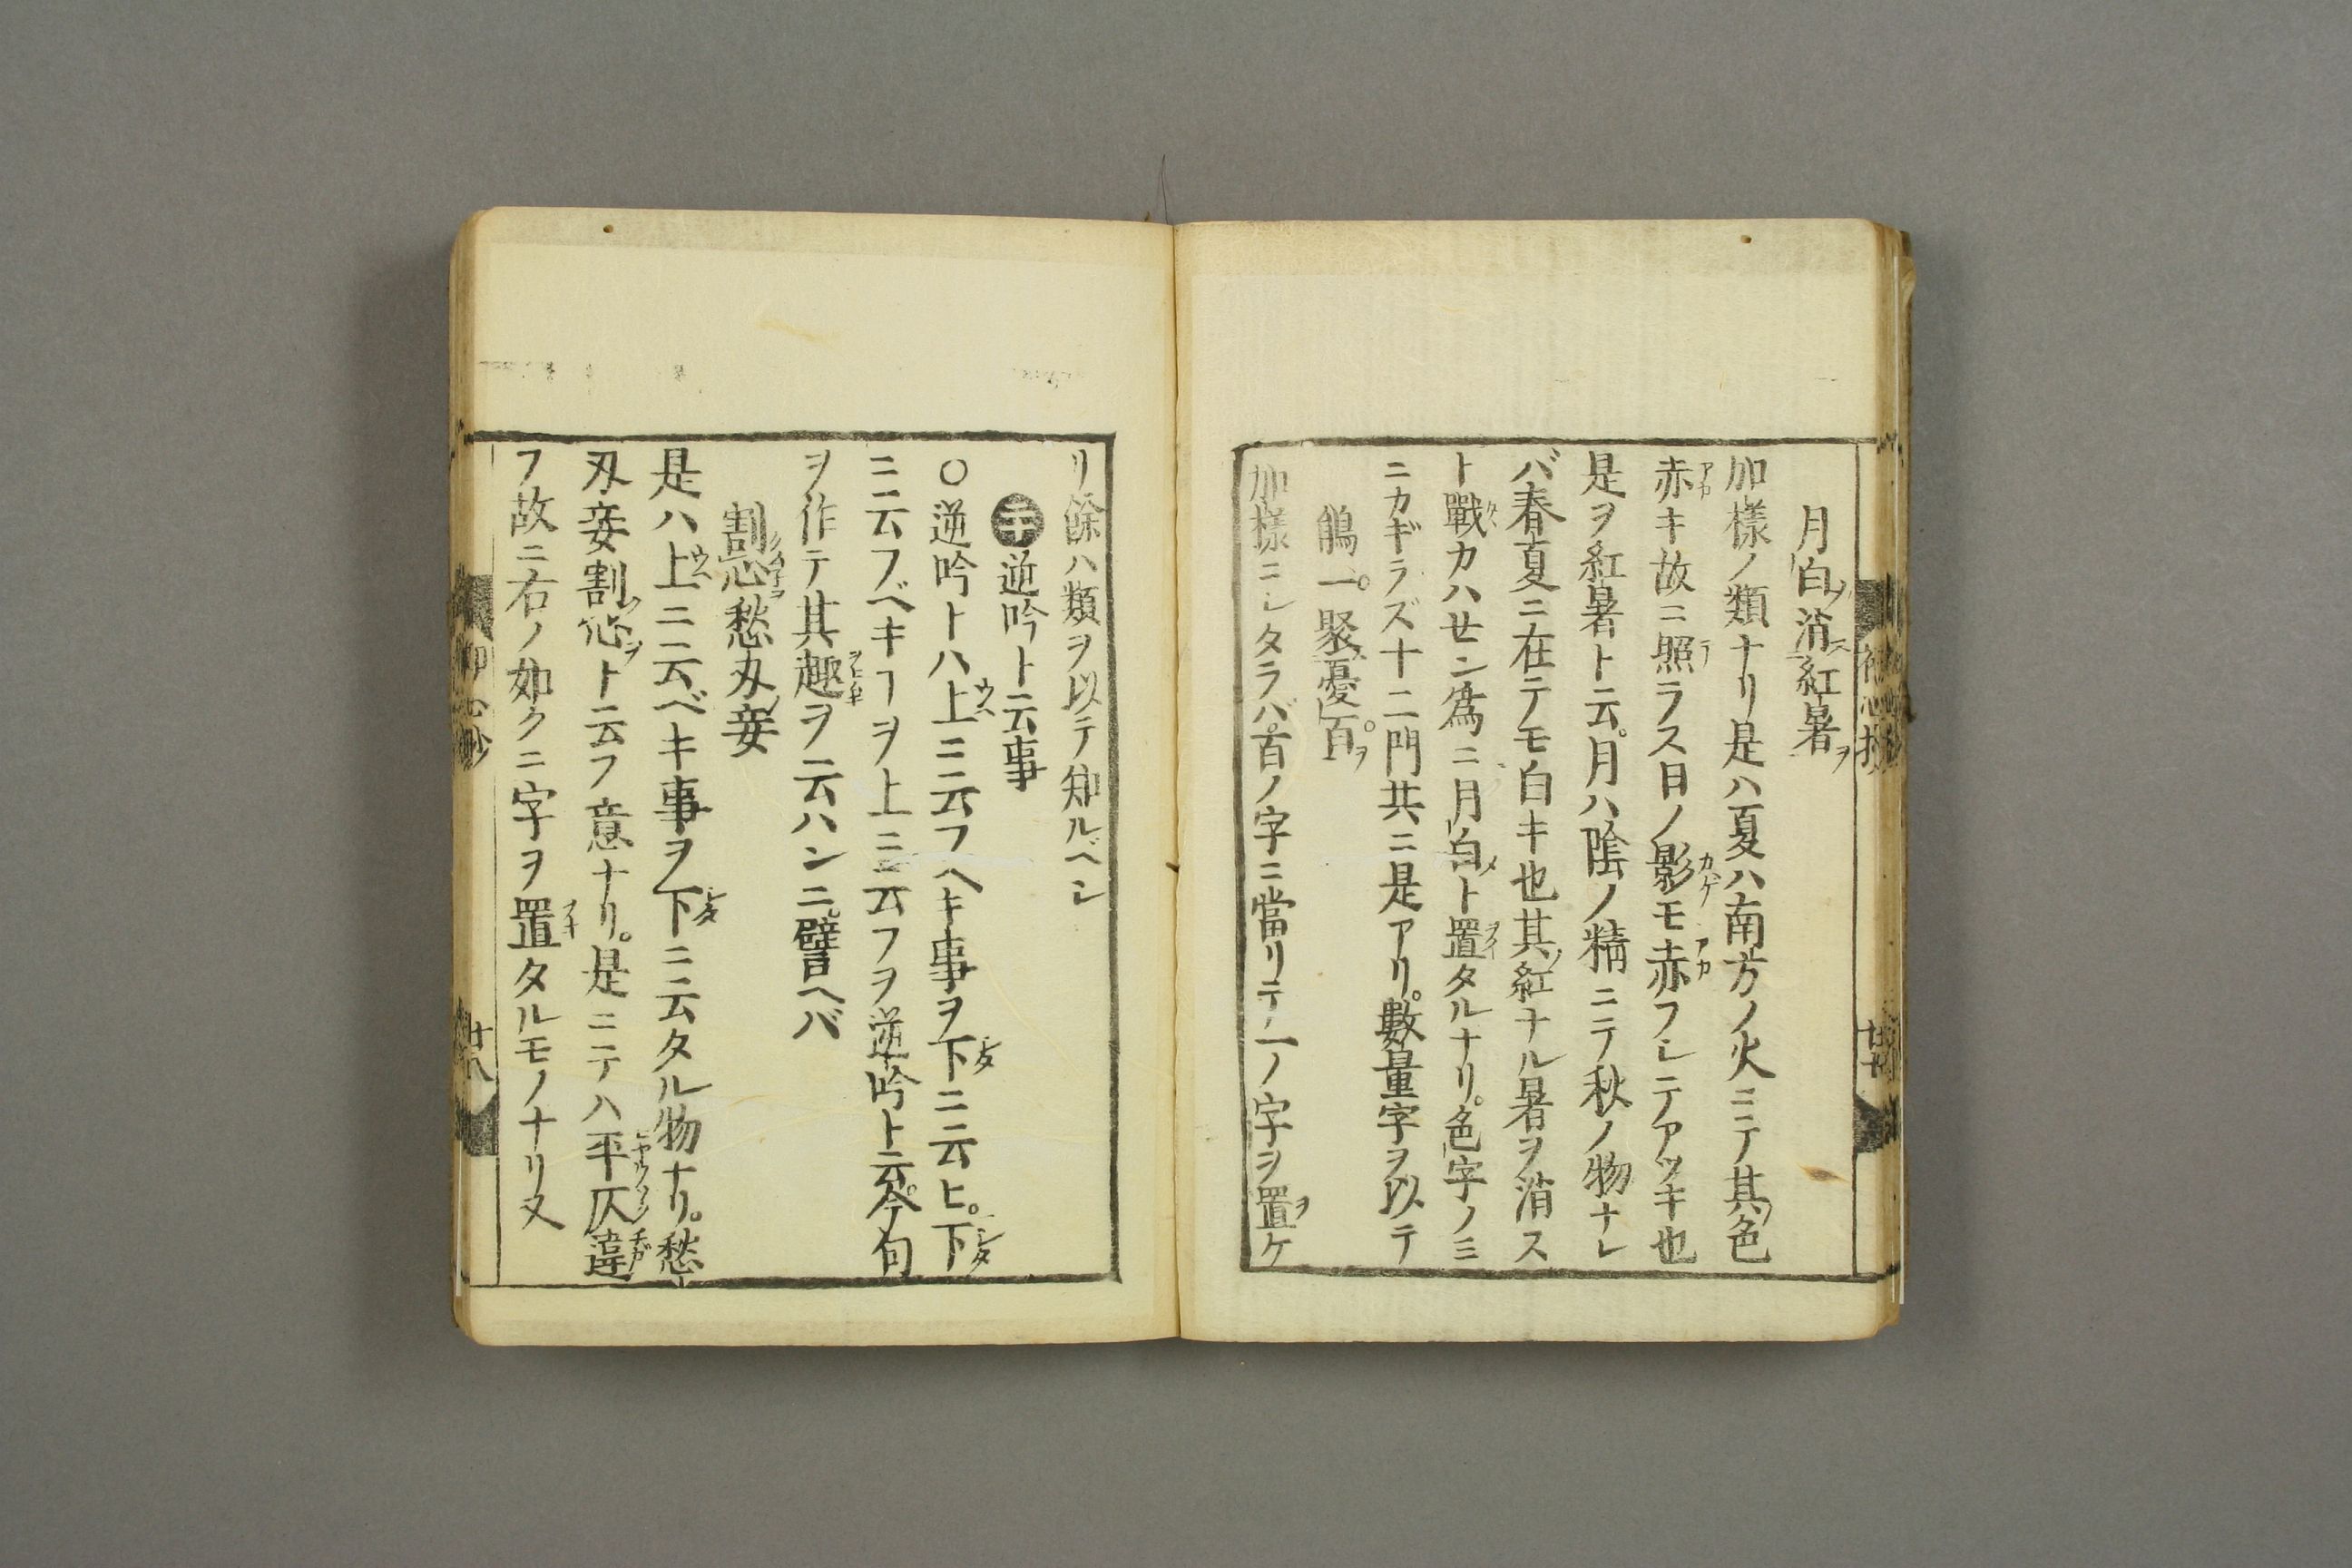 月白消紅暑ヲ
加樣ノ類ナリ是ハ夏ハ南方ノ火ニテ其色
赤キ故ニ照ラス日ノ影モ赤フレテアツキ也
是ヲ紅暑ト云。月ハ陰ノ精ニテ秋ノ物ナレ
バ春夏ニ在テモ白キ也其紅ナル暑ヲ消ス
ト戰カハせン爲ニ月白ト置タルナリ。色字ノミ
ニカギラズ十二門共ニ是アリ。數量字ヲ以テ
鵑一。聚憂百。ヲ
加樣ニレタラバ。百ノ字ニ當リテ一ノ字ヲ置ケ
リ餘ハ類ヲ以テ知ルベシ
逆吟ト云事
○逆吟トハ上ニ云フヘキ事ヲ下ニ云ヒ。下
ニ云フベキヿヲ上ニ云フヲ逆吟ト云。今句
ヲ作テ其趣ヲ云ハンニ。譬ヘバ
割愁刄妾
是ハ上ニ云ベキ事ヲ下ニ云タル物ナリ。愁
刄妾割ト云フ意ナリ。是ニテハ平仄違
フ故ニ右ノ如クニ字ヲ置タルモノナリ又
廿八